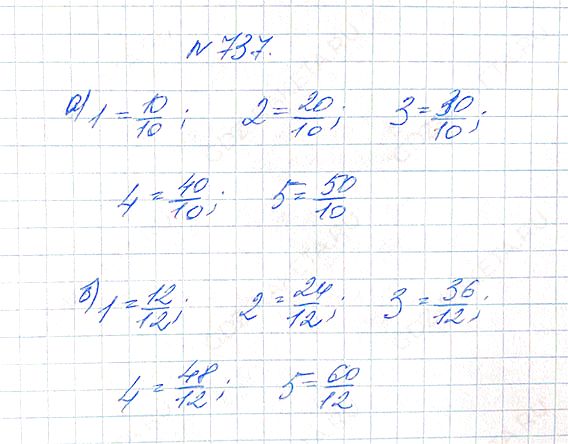 N 737.
а) 1 = 10/10; 2 = 20/10; 3 = 30/10;
4 = 40/10; 5 = 50/10
б) 1 = 12/12; 2 = 24/12; 3 = 36/12;
4 = 48/12; 5 = 60/12